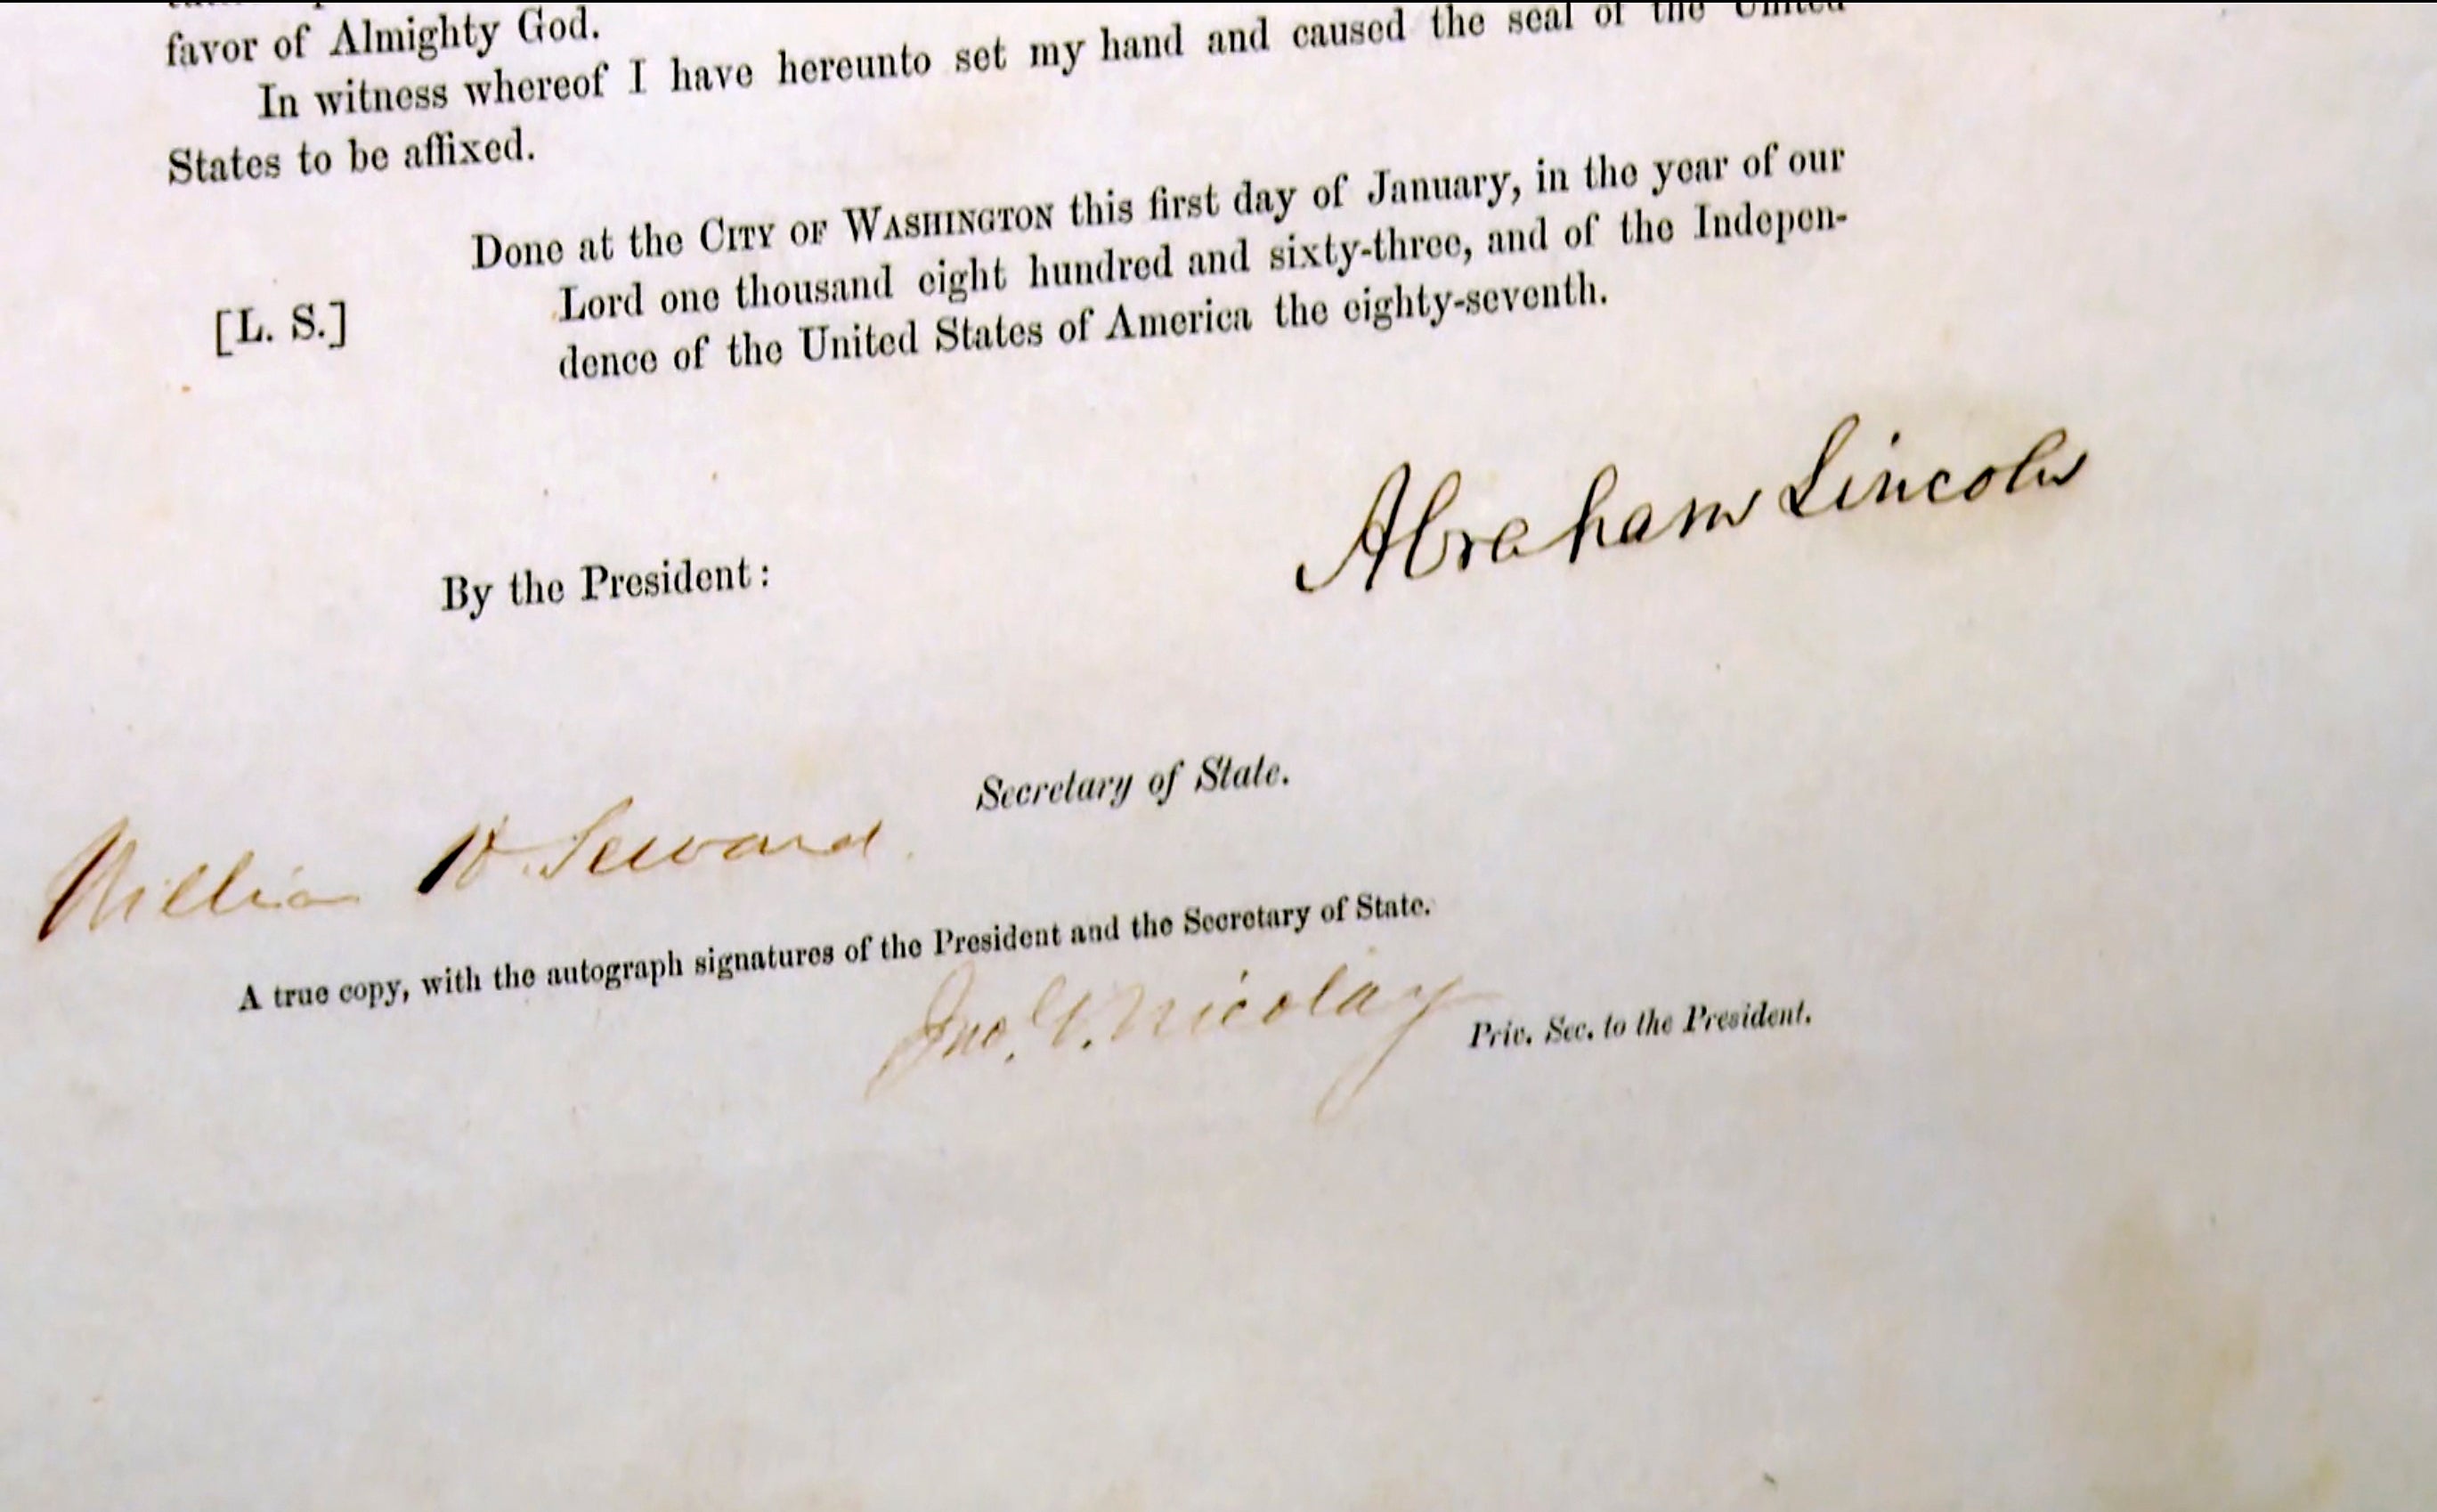 favor of Almighty God.
In witness whereof I have hereunto set my hand and caused the seal of the United
States to be affixed.
Done at the CITY OF WASHINGTON this first day of January, in the year of our
[L. S.] Lord one thousand eight hundred and sixty-three, and of the Indepen-
dence of the United States of America the eighty-seventh.
Abraham Lincoln
By the President:
Secretary of State.
William H. Seward.
A true copy, with the autograph signatures of the President and the Secretary of State.
Jno. G. Nicolay Priv. Sec. to the President.